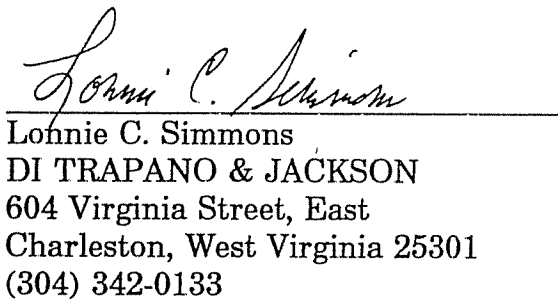 Lonnie C. Simmons
Lonnie C. Simmons
DI TRAPANO & JACKSON
604 Virginia Street, East
Charleston, West Virginia 25301
(304) 342-0133